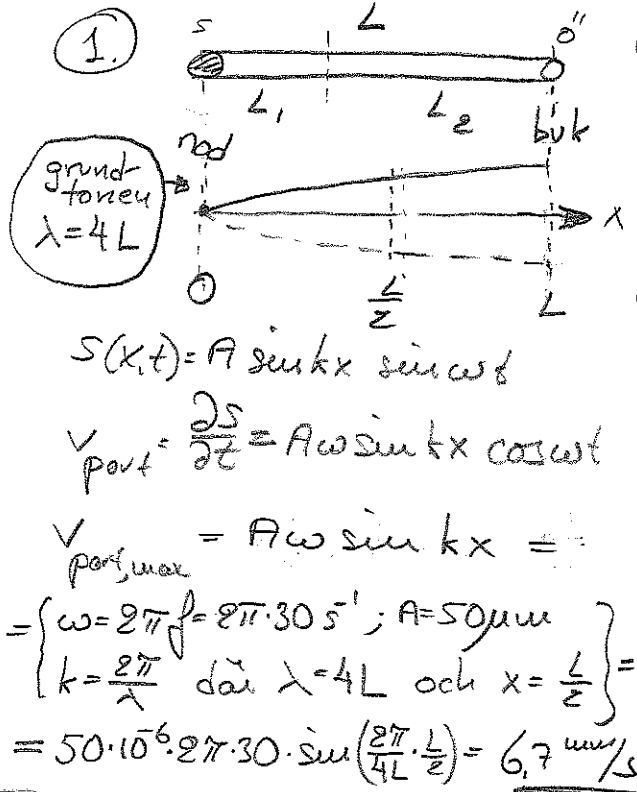 1.
S L Ö
L₁ L₂
nod buk
grund-
tonen
λ=4L
x
O L/2 L
S(x,t)=A sin kx sin ωt
v_part = ∂S/∂t = Aω sin kx cos ωt
v_part,max = Aω sin kx =
= { ω=2πf=2π·30 s⁻¹; A=50μm
k=2π/λ där λ=4L och x=L/2 } =
= 50·10⁻⁶·2π·30·sin(2π/4L·L/2) = 6,7 mm/s